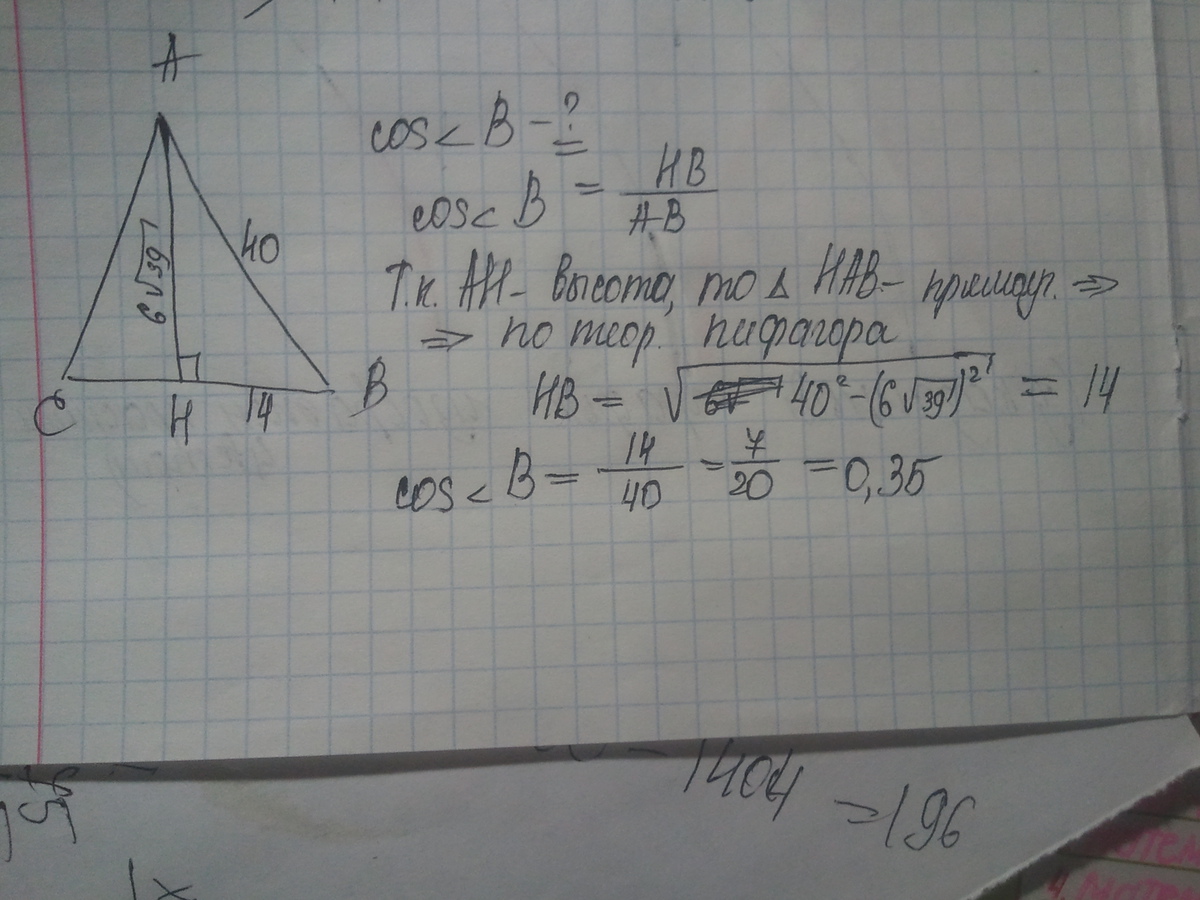 A
6√39
40
C
H
14
B
cos < B - ?
cos < B = HB / AB
Т.к. AH - высота, то Δ HAB - прямоуг. ⇒
⇒ по теор. пифагора
HB = √(40² - (6√39)²) = 14
cos < B = 14/40 = 7/20 = 0,35
- 1404
= 196
x